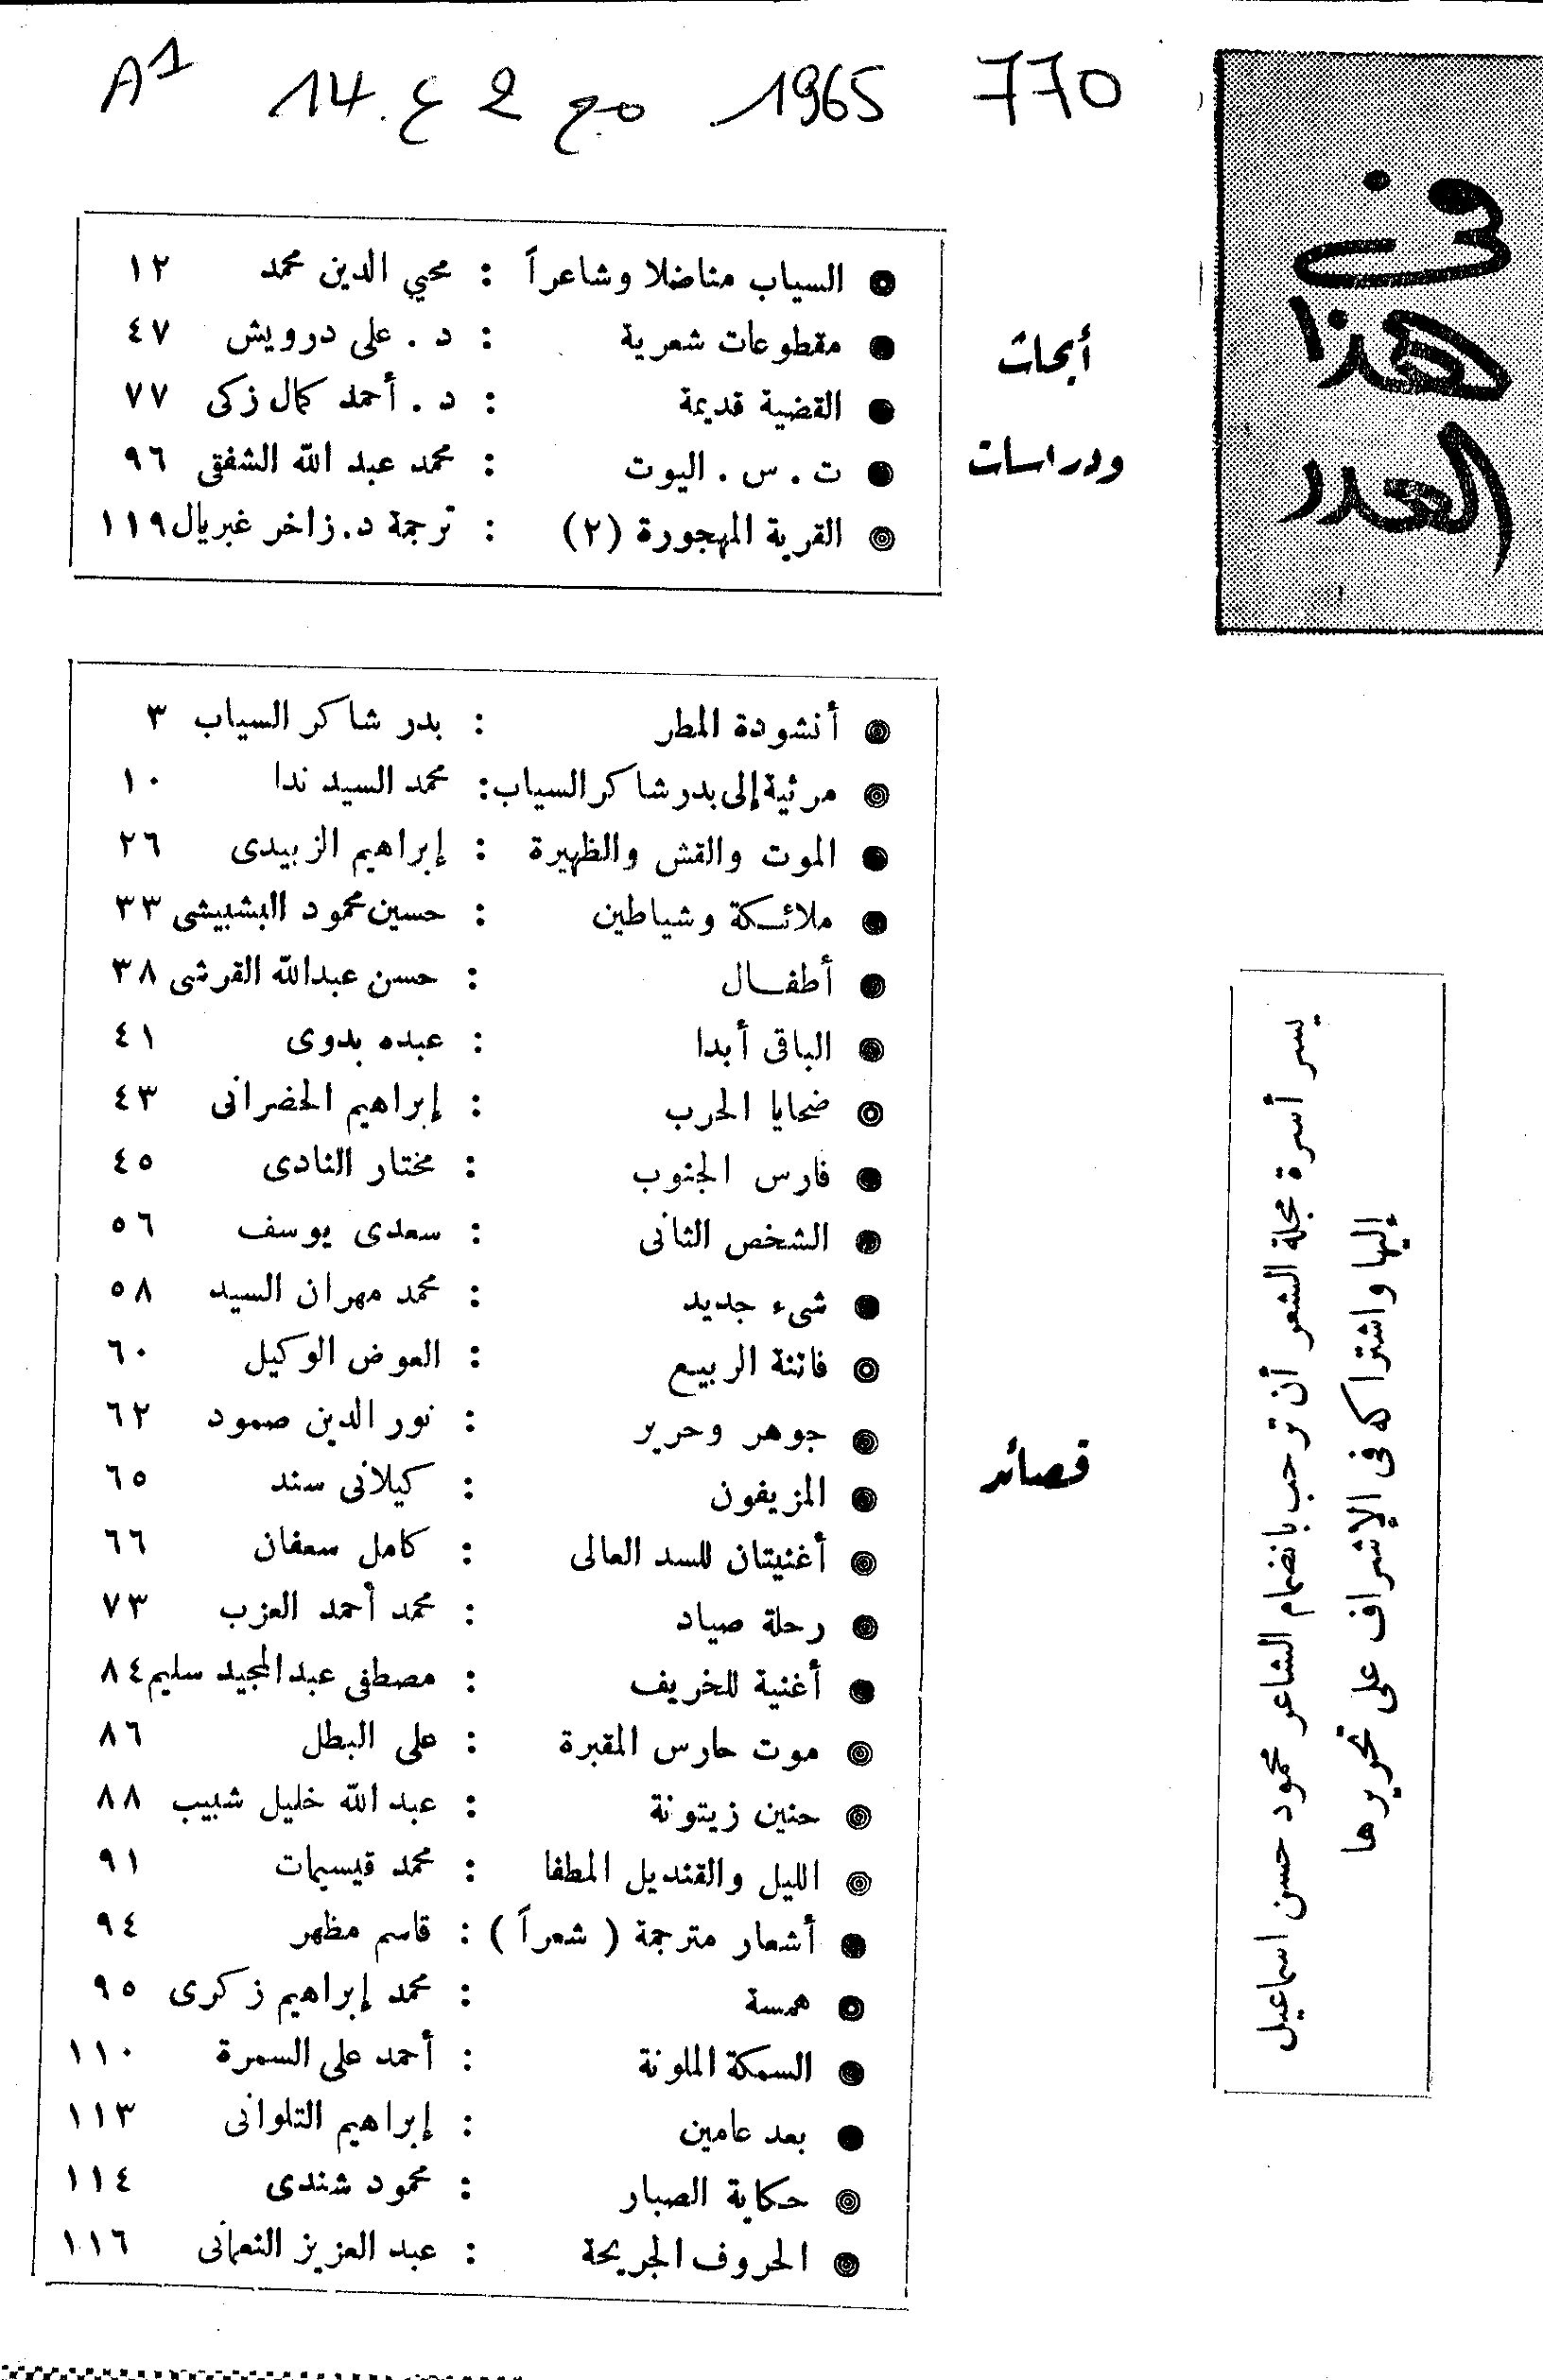 770 1965 مج 2 ع. 14 A1
في
هذا
العدد
أبحاث
ودراسات
السياب مناضلا وشاعراً : محيي الدين محمد ١٢
مقطوعات شعرية : د . على درويش ٤٧
القضية قديمة : د . أحمد كمال زكى ٧٧
ت . س . اليوت : محمد عبد الله الشفقى ٩٦
القرية المهجورة (٢) : ترجمة د. زاخر غبريال ١١٩
قصائد
أنشودة المطر : بدر شاكر السياب ٣
مرثية إلى بدر شاكر السياب : محمد السيد ندا ١٠
الموت والقش والظهيرة : إبراهيم الزبيدى ٢٦
ملائكة وشياطين : حسين محمود البشبيشى ٣٣
أطفـال : حسن عبدالله القرشى ٣٨
الباقى أبدا : عبده بدوى ٤١
ضحايا الحرب : إبراهيم الحضرانى ٤٣
فارس الجنوب : مختار النادى ٤٥
الشخص الثانى : سعدى يوسف ٥٦
شىء جديد : محمد مهران السيد ٥٨
فاتنة الربيع : العوض الوكيل ٦٠
جوهر وحرير : نور الدين صمود ٦٢
المزيفون : كيلانى سند ٦٥
أغنيتان للسد العالى : كامل سعفان ٦٦
رحلة صياد : محمد أحمد العزب ٧٣
أغنية للخريف : مصطفى عبد المجيد سليم ٨٤
موت حارس المقبرة : على البطل ٨٦
حنين زيتونة : عبد الله خليل شبيب ٨٨
الليل والقنديل المطفا : محمد قيسيمات ٩١
أشعار مترجمة ( شعراً ) : قاسم مظهر ٩٤
همسة : محمد إبراهيم زكرى ٩٥
السمكة الملونة : أحمد على السمرة ١١٠
بعد عامين : إبراهيم التلوانى ١١٣
حكاية الصبار : محمود شندى ١١٤
الحروف الجريحة : عبد العزيز النعمانى ١١٦
يسر أسرة مجلة الشعر أن ترحب بانضمام الشاعر محمود حسن اسماعيل
إليها واشتراكه فى الإشراف على تحريرها